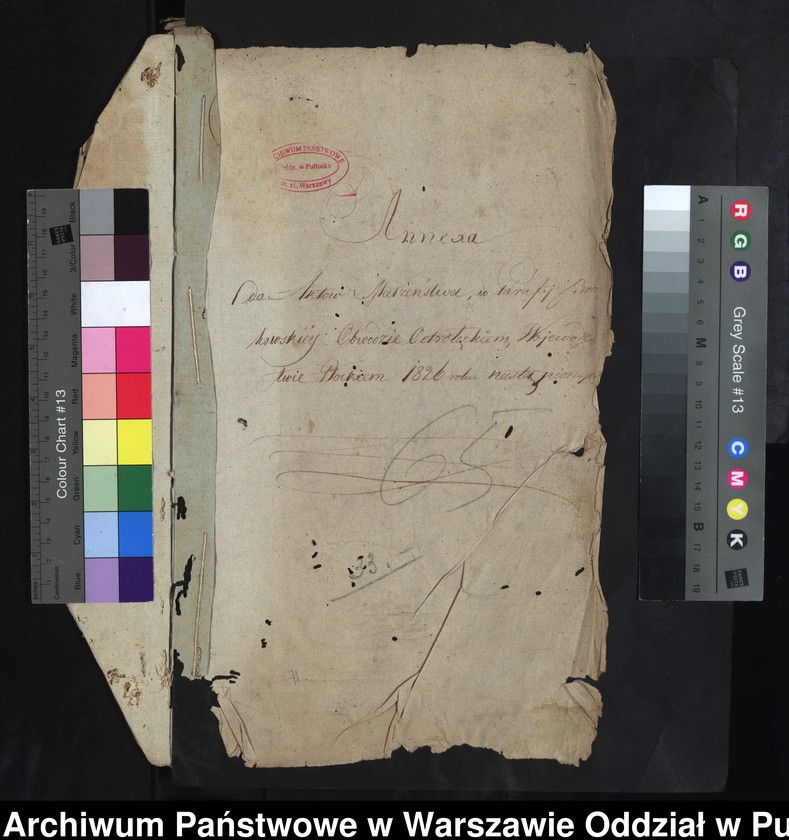 CHIWUM PAŃSTWOWE
ddz. w Pułtusku
m. st. Warszawy
Annexa
do Aktów Małżeństwa, w Parafij
kowskiey Obwodzie Ostrołęckiem, Wojewódz
twie Płockiem 1826 roku nastąpionych
65
33.
Colour Chart #13
Blue
Cyan
Green
Yellow
Red
Magenta
White
3/Color
Black
Inches
Centimetres
R
G
B
Grey Scale #13
C
M
Y
K
A
1
2
3
4
5
6
M
8
9
10
11
12
13
14
15
B
17
18
19
Archiwum Państwowe w Warszawie Oddział w Pu